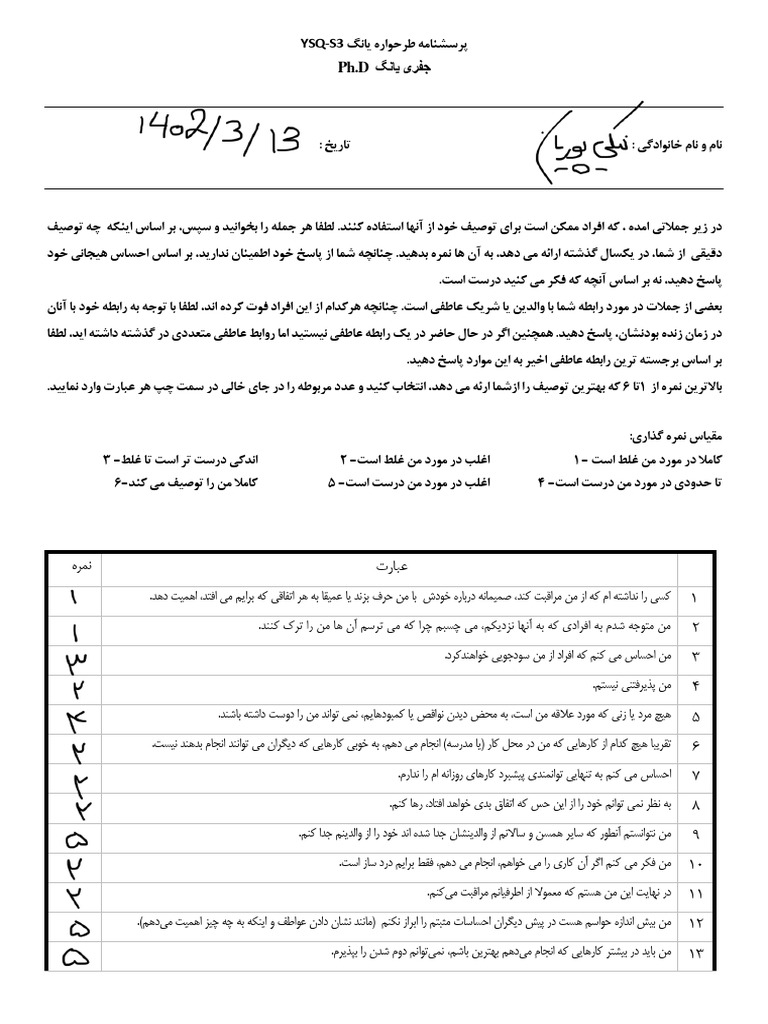 پرسشنامه طرحواره یانگ YSQ-S3
جفری یانگ Ph.D
نام و نام خانوادگی :
تاریخ : 1402/3/13
در زیر جملاتی امده ، که افراد ممکن است برای توصیف خود از آنها استفاده کنند. لطفا هر جمله را بخوانید و سپس، بر اساس اینکه چه توصیف
دقیقی از شما، در یکسال گذشته ارائه می دهد، به آن ها نمره بدهید. چنانچه شما از پاسخ خود اطمینان ندارید، بر اساس احساس هیجانی خود
پاسخ دهید، نه بر اساس آنچه که فکر می کنید درست است.
بعضی از جملات در مورد رابطه شما با والدین یا شریک عاطفی است. چنانچه هرکدام از این افراد فوت کرده اند، لطفا با توجه به رابطه خود با آنان
در زمان زنده بودنشان، پاسخ دهید. همچنین اگر در حال حاضر در یک رابطه عاطفی نیستید اما روابط عاطفی متعددی در گذشته داشته اید. لطفا
بر اساس برجسته ترین رابطه عاطفی اخیر به این موارد پاسخ دهید.
بالاترین نمره از ۱تا ۶ که بهترین توصیف را ازشما ارئه می دهد، انتخاب کنید و عدد مربوطه را در جای خالی در سمت چپ هر عبارت وارد نمایید.
مقیاس نمره گذاری:
کاملا در مورد من غلط است -۱ اغلب در مورد من غلط است- ۲ اندکی درست تر است تا غلط- ۳
تا حدودی در مورد من درست است- ۴ اغلب در مورد من درست است- ۵ کاملا من را توصیف می کند-۶
عبارت نمره
۱ کسی را نداشته ام که از من مراقبت کند، صمیمانه درباره خودش با من حرف بزند یا عمیقا به هر اتفاقی که برایم می افتد، اهمیت دهد. ۱
۲ من متوجه شدم به افرادی که به آنها نزدیکم، می چسبم چرا که می ترسم آن ها من را ترک کنند. ۱
۳ من احساس می کنم که افراد از من سودجویی خواهندکرد. ۳
۴ من پذیرفتنی نیستم. ۲
۵ هیچ مرد یا زنی که مورد علاقه من است، به محض دیدن نواقص یا کمبودهایم، نمی تواند من را دوست داشته باشند.
۶ تقریبا هیچ کدام از کارهایی که من در محل کار (یا مدرسه) انجام می دهم، به خوبی کارهایی که دیگران می توانند انجام بدهند نیست. ۲
۷ احساس می کنم به تنهایی توانمندی پیشبرد کارهای روزانه ام را ندارم. ۲
۸ به نظر نمی توانم خود را از این حس که اتفاق بدی خواهد افتاد، رها کنم. ۲
۹ من نتوانستم آنطور که سایر همسن و سالانم از والدینشان جدا شده اند خود را از والدینم جدا کنم. ۵
۱۰ من فکر می کنم اگر آن کاری را می خواهم، انجام می دهم، فقط برایم درد ساز است. ۲
۱۱ در نهایت این من هستم که معمولا از اطرفیانم مراقبت می‌کنم. ۲
۱۲ من بیش اندازه حواسم هست در پیش دیگران احساسات مثبتم را ابراز نکنم (مانند نشان دادن عواطف و اینکه به چه چیز اهمیت می‌دهم). ۵
۱۳ من باید در بیشتر کارهایی که انجام می‌دهم بهترین باشم، نمی‌توانم دوم شدن را بپذیرم. ۵